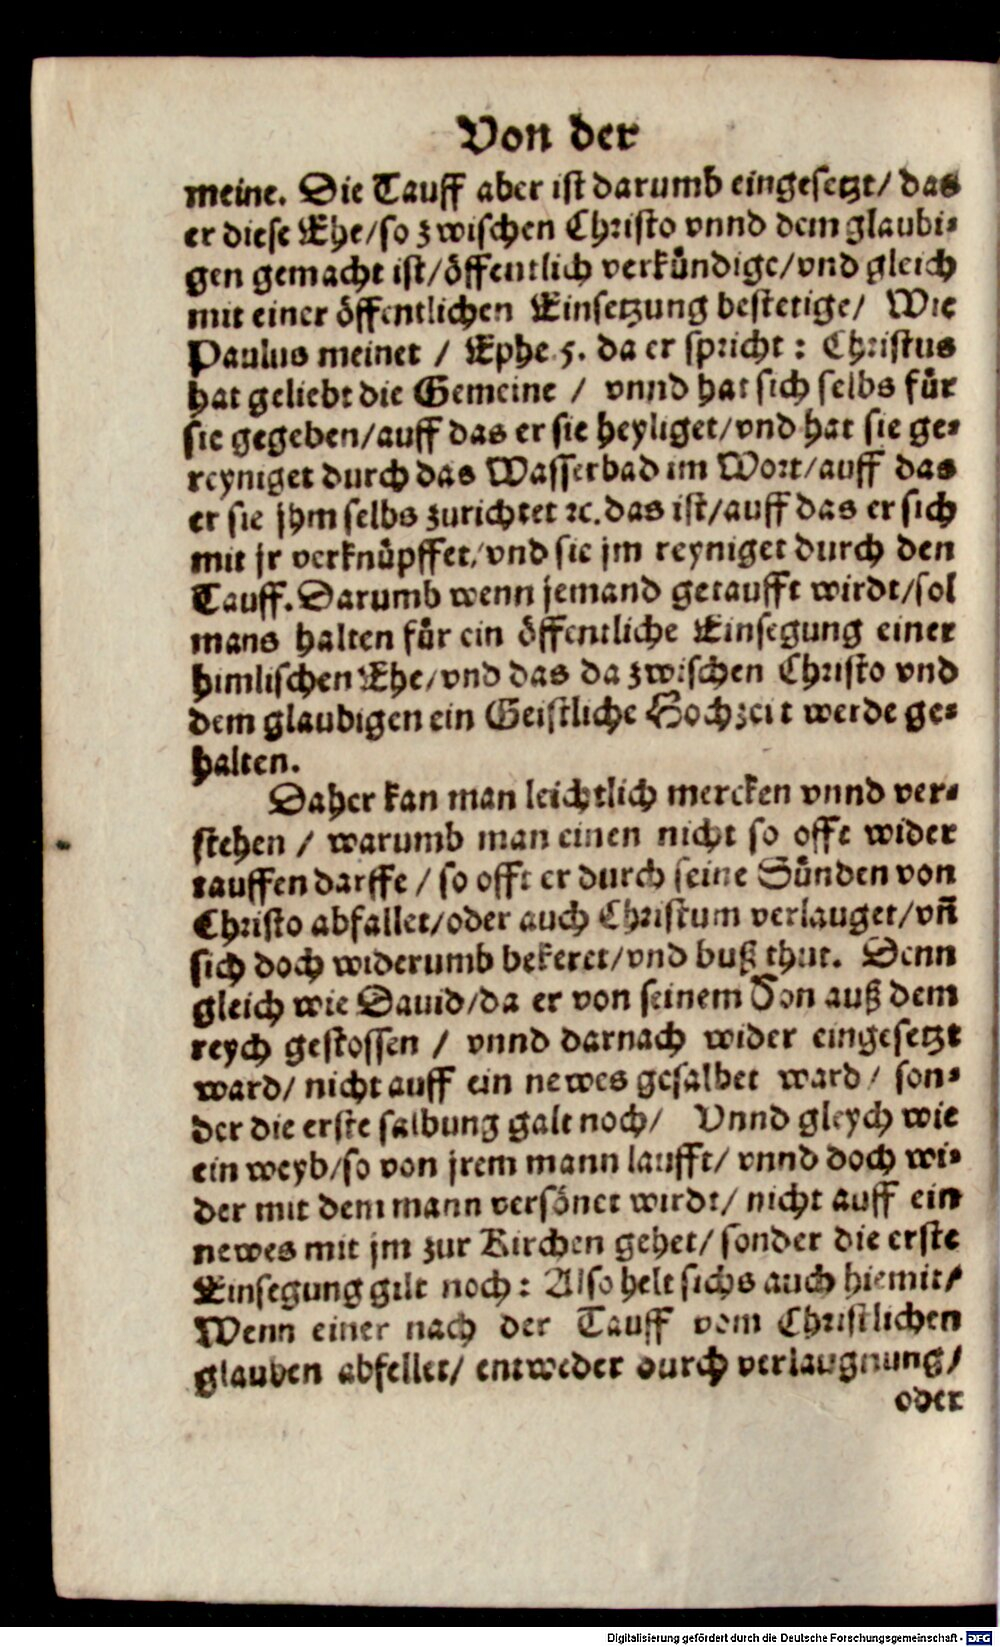 Von der
meine. Die Tauff aber ist darumb eingesetzt/ das
er diese Ehe/so zwischen Christo vnnd dem glaubi-
gen gemacht ist/öffentlich verkündige/vnd gleich
mit einer öffentlichen Einsetzung bestetige/ Wie
Paulus meinet / Ephe 5. da er spricht: Christus
hat geliebt die Gemeine / vnnd hat sich selbs für
sie gegeben/auff das er sie heyliget/vnd hat sie ge-
reyniget durch das Wasserbad im Wort/auff das
er sie jhm selbs zurichtet ꝛc. das ist/auff das er sich
mit jr verknüpffet/vnd sie jm reyniget durch den
Tauff. Darumb wenn jemand getaufft wirdt/sol
mans halten für ein öffentliche Einsegung einer
himlischen Ehe/vnd das da zwischen Christo vnd
dem glaubigen ein Geistliche Hochzeit werde ge-
halten.
Daher kan man leichtlich mercken vnnd ver-
stehen / warumb man einen nicht so offt wider
tauffen darffe / so offt er durch seine Sünden von
Christo abfallet/oder auch Christum verlauget/vñ
sich doch widerumb bekeret/vnd buß thut. Denn
gleich wie Dauid/da er von seinem Son auß dem
reych gestossen / vnnd darnach wider eingesetzt
ward/ nicht auff ein newes gesalbet ward/ son-
der die erste salbung galt noch/ Vnnd gleych wie
ein weyb/so von jrem mann laufft/ vnnd doch wi-
der mit dem mann versönet wirdt/ nicht auff ein
newes mit jm zur Kirchen gehet/ sonder die erste
Einsegung gilt noch: Also helt sichs auch hiemit/
Wenn einer nach der Tauff vom Christlichen
glauben abfellet/ entweder durch verlaugnung/
oder
Digitalisierung gefördert durch die Deutsche Forschungsgemeinschaft - DFG